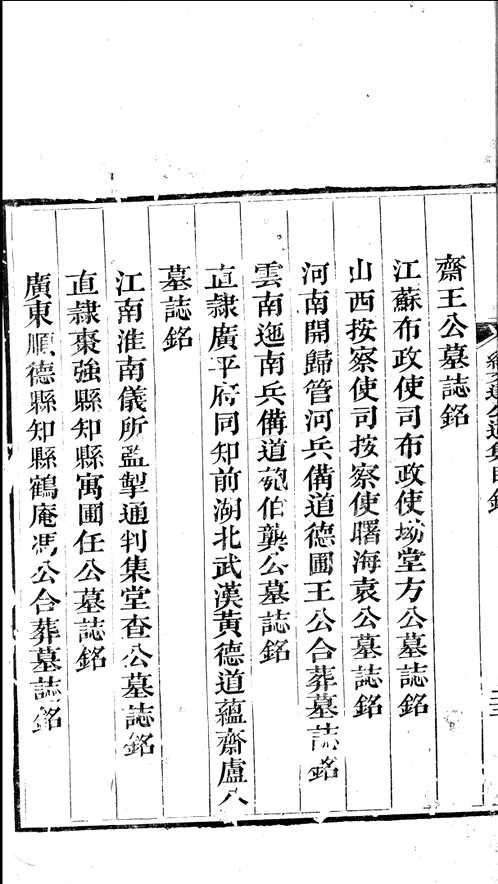 紀文達公遺集目錄
齋王公墓誌銘
江蘇布政使司布政使坳堂方公墓誌銘
山西按察使司按察使曙海袁公墓誌銘
河南開歸管河兵備道德圃王公合葬墓誌銘
雲南迤南兵備道匏伯龔公墓誌銘
直隸廣平府同知前湖北武漢黃德道蘊齋盧公
墓誌銘
江南淮南儀所監掣通判集堂查公墓誌銘
直隸棗強縣知縣寓圃任公墓誌銘
廣東順德縣知縣鶴庵馮公合葬墓誌銘